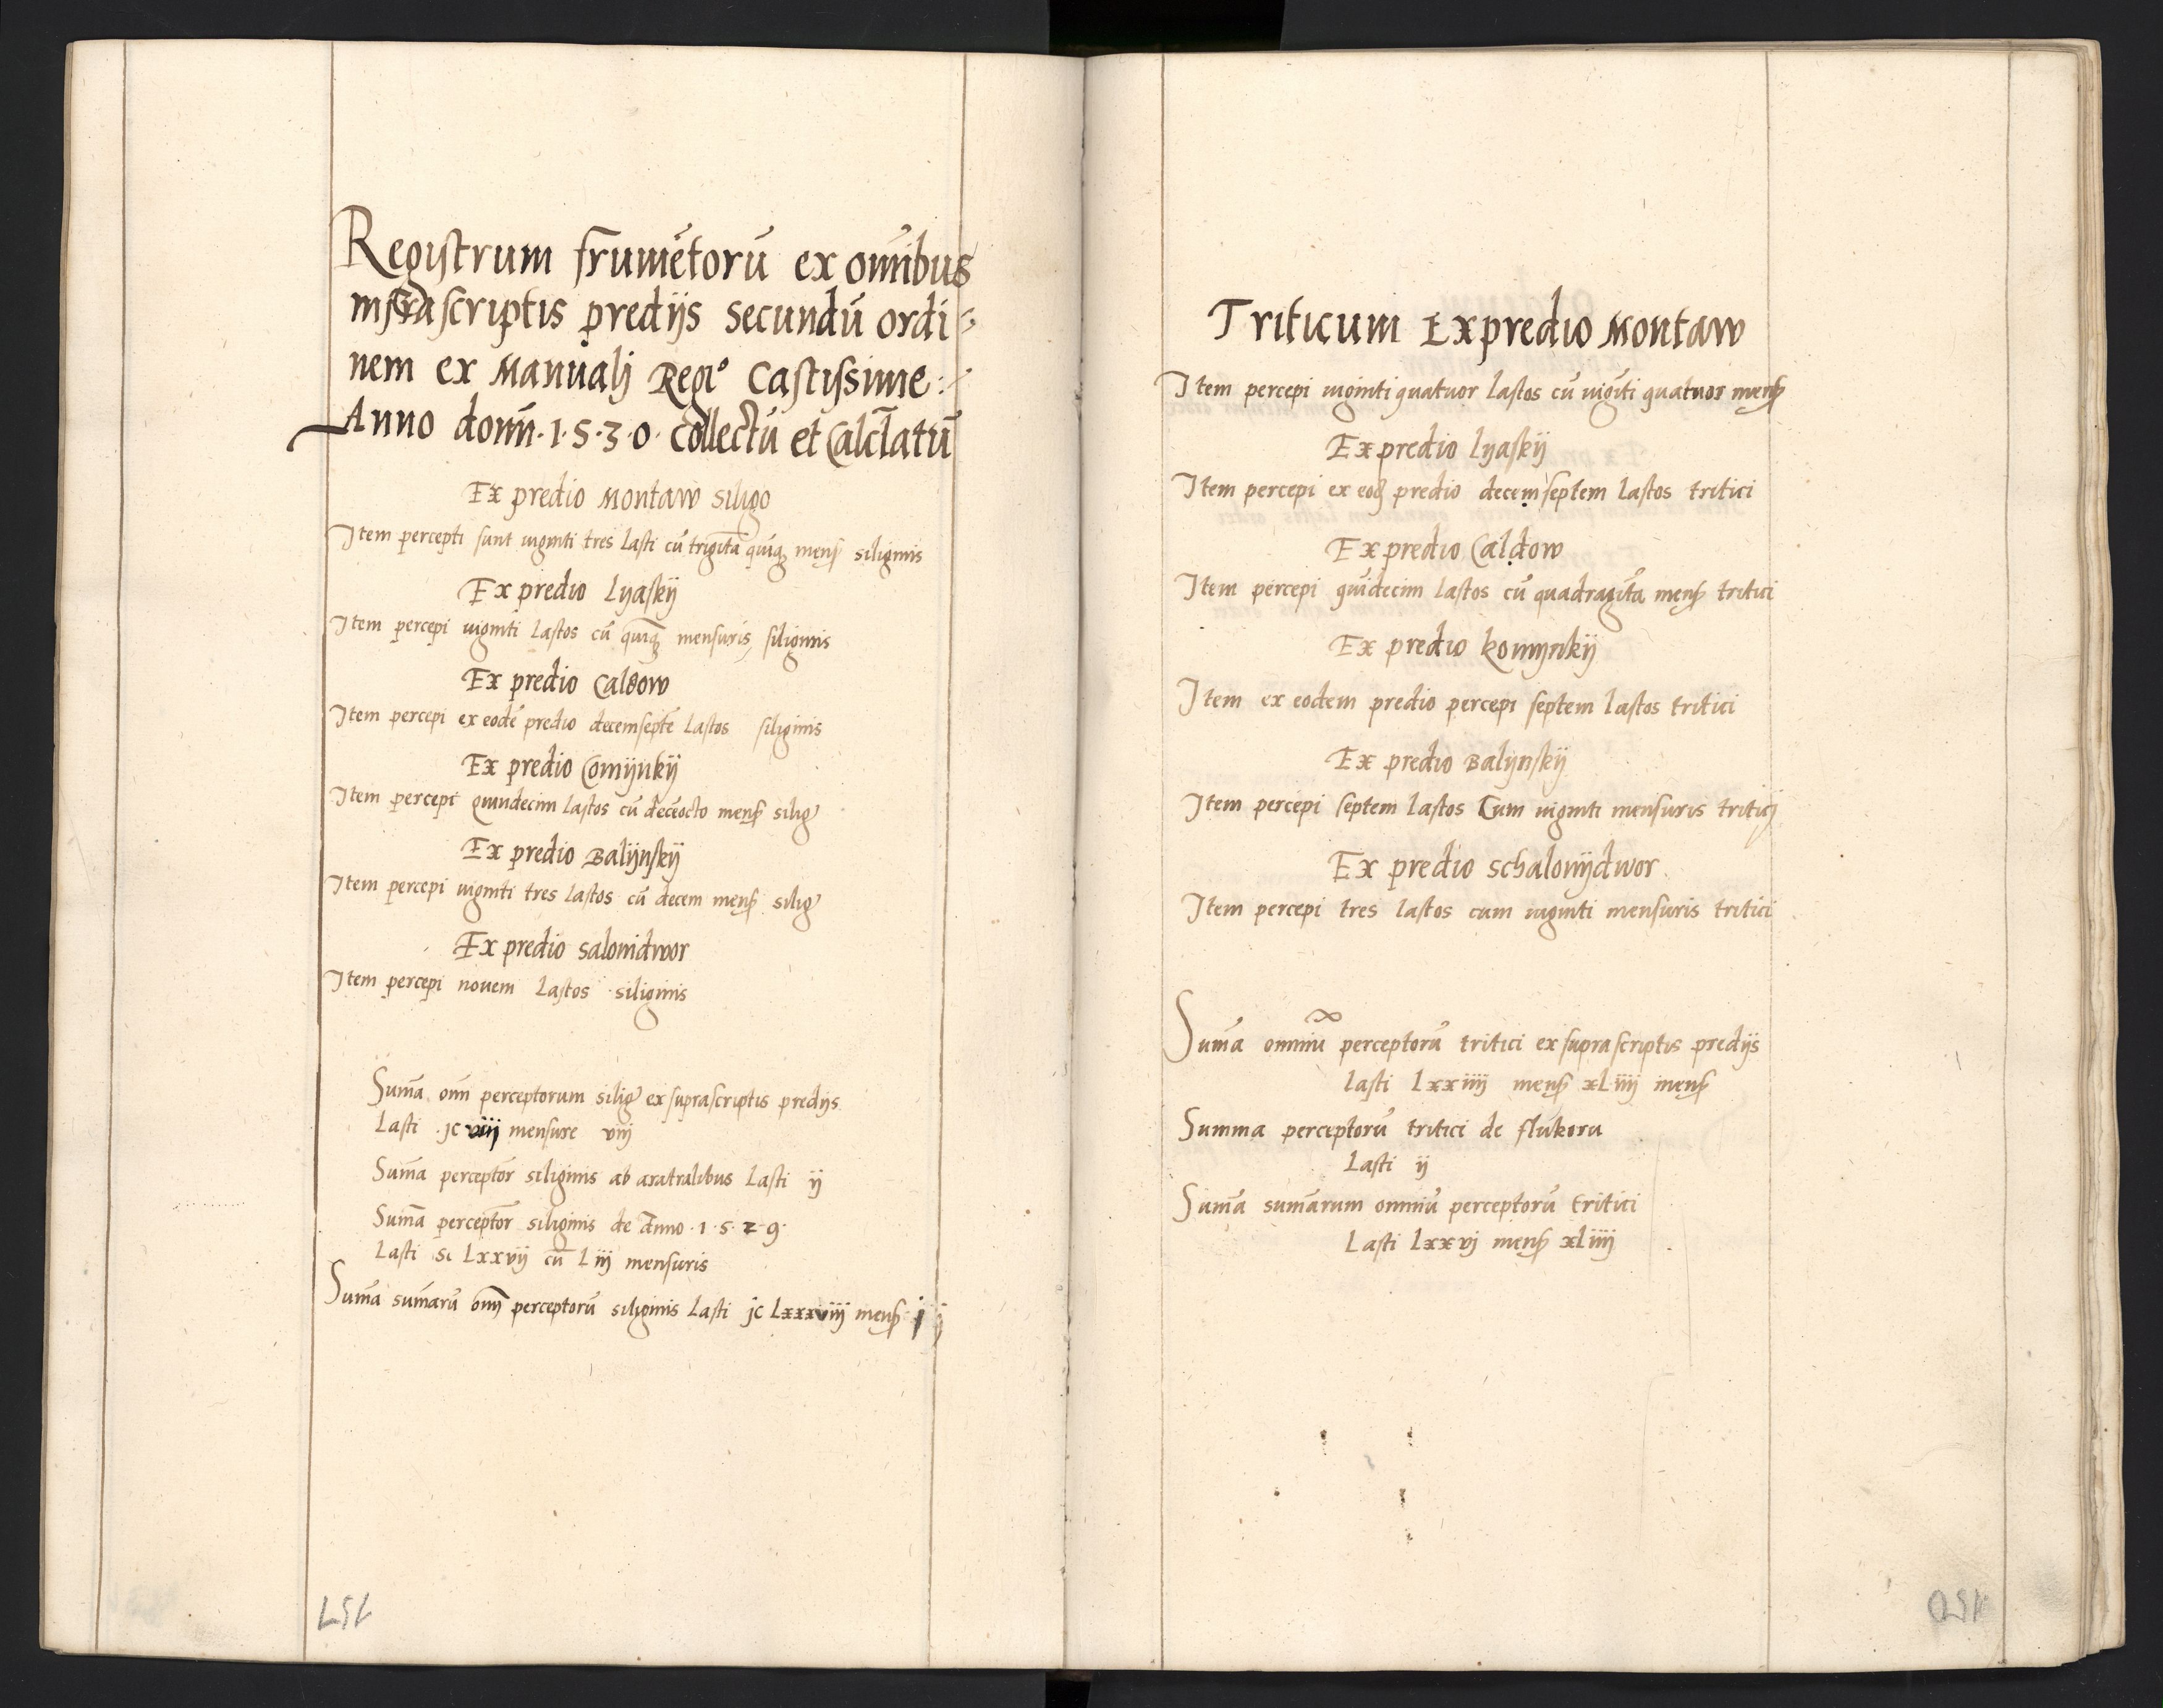 Regystrum frumētorū ex omībus
infrascriptis predijs Secundū ordi=
nem ex Manualj Regio Castissime
Anno domn̄ · 1 · 5 · 3 · 0 · collectū et Calcl̄atū
Ex predio Montaw siligo
Item percepti sunt viginti tres lasti cū trigīta quīqʒ mens siliginis
Ex predio Lyaskij
Item percepi viginti lastos cū quīqʒ mensuris siliginis
Ex predio Caldow
Item percepi ex eodē predio decemseptē lastos siliginis
Ex predio Comijnkij
Item percepi quindecim lastos cū deceocto mens silig
Ex predio Balijnskij
Item percepi viginti tres lastos cū decem mens silig
Ex predio Salonidwor
Item percepi nouem lastos siliginis
Sum̄a omn̄ perceptorum silig ex suprascriptis predijs
Lasti jc viij mensure viij
Sum̄a perceptor̄ siliginis ab aratralibus Lasti ij
Sum̄a perceptor̄ siliginis de Anno · 1 · 5 · 2 · 9 ·
Lasti Lxxvij cū L iij mensuris
Sum̄a sum̄arū omn̄ perceptorū siliginis Lasti jc Lxxxviij mens j
157
Triticum Ex predio Montaw
Item percepi viginti quatuor lastos cū vigīti quatuor mens
Ex predio lyaskij
Item percepi ex eodʒ predio decemseptem lastos tritici
Ex predio Caldow
Item percepi quīdecim lastos cū quadragīta mens tritici
Ex predio komijnkij
Item ex eodem predio percepi septem lastos tritici
Ex predio Balijnskij
Item percepi septem lastos Cum viginti mensuris triticj
Ex predio schalonijdwor
Item percepi tres lastos cum viginti mensuris tritici
Sum̄a omniū perceptorū tritici ex suprascriptis predijs
lasti Lxxiiij mens xLiiij mens
Summa perceptorū tritici de flukoru
Lasti ij
Sum̄a sum̄arum omniū perceptorū tritici
Lasti Lxxvj mens xLiiij